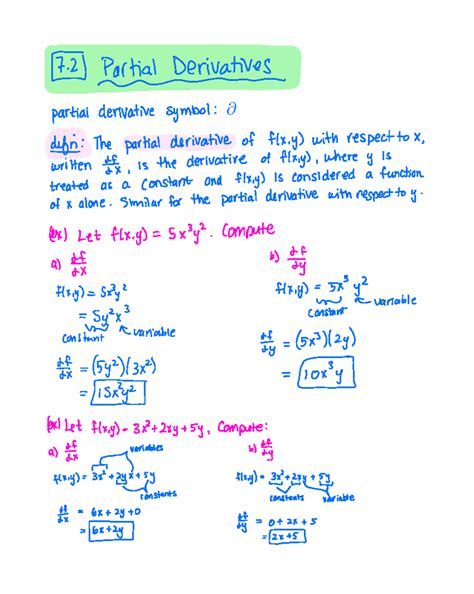 7.2 Partial Derivatives
partial derivative symbol: ∂
defn: The partial derivative of f(x,y) with respect to x,
written ∂f/∂x, is the derivative of f(x,y), where y is
treated as a constant and f(x,y) is considered a function
of x alone. Similar for the partial derivative with respect to y.
(ex) Let f(x,y) = 5x³y². Compute
a) ∂f/∂x
b) ∂f/∂y
f(x,y) = 5x³y²
= 5y²x³
constant variable
∂f/∂x = (5y²)(3x²)
= 15x²y²
f(x,y) = 5x³y²
constant variable
∂f/∂y = (5x³)(2y)
= 10x³y
(ex) Let f(x,y) = 3x²+2xy+5y, Compute:
a) ∂f/∂x
variables
f(x,y) = 3x²+2yx+5y
constants
∂f/∂x = 6x+2y+0
= 6x+2y
b) ∂f/∂y
f(x,y) = 3x²+2xy+5y
constants variable
∂f/∂y = 0+2x+5
= 2x+5